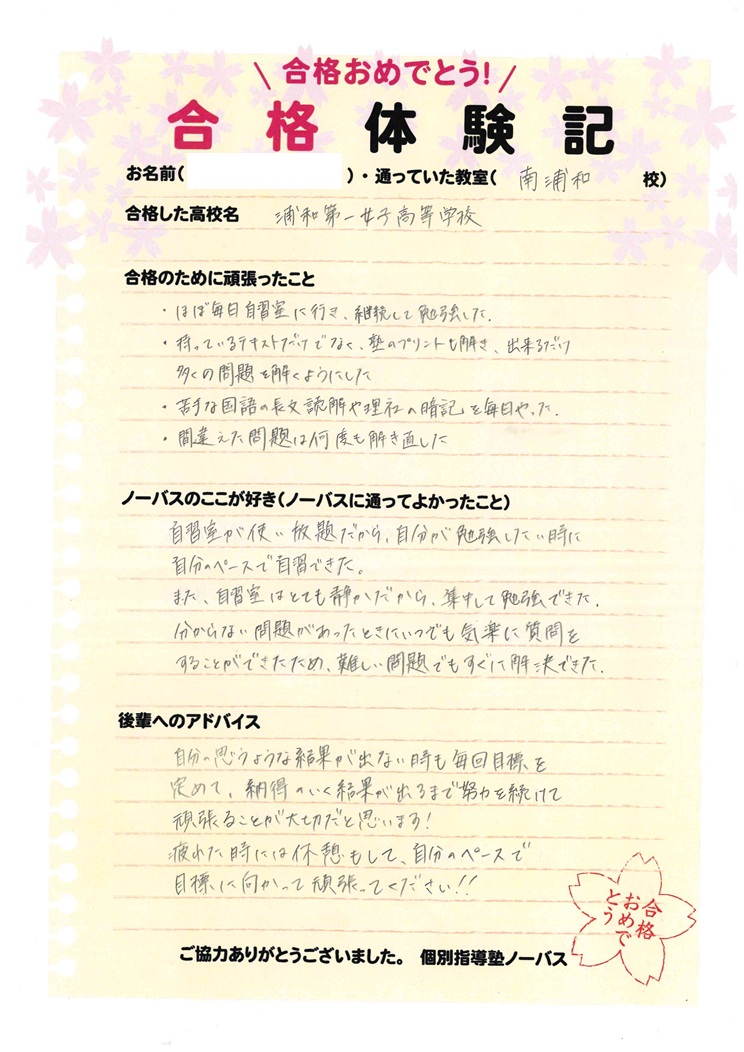 \ 合格おめでとう! /
合格体験記
お名前( )・通っていた教室( 南浦和 校)
合格した高校名 浦和第一女子高等学校
合格のために頑張ったこと
・ほぼ毎日自習室に行き、継続して勉強した.
・持っているテキストだけでなく、塾のプリントも解き、出来るだけ
多くの問題を解くようにした
・苦手な国語の長文読解や理社の暗記を毎日やった.
・間違えた問題は何度も解き直した
ノーバスのここが好き(ノーバスに通ってよかったこと)
自習室が使い放題だから、自分が勉強したい時に
自分のペースで自習できた。
また、自習室はとても静かだから、集中して勉強できた.
分からない問題があったときにいつでも気楽に質問を
することができたため、難しい問題でもすぐに解決できた.
後輩へのアドバイス
自分の思うような結果が出ない時も毎回目標を
定めて、納得のいく結果が出るまで努力を続けて
頑張ることが大切だと思います!
疲れた時には休憩もして、自分のペースで
目標に向かって頑張ってください!!
合格
おめで
とう
ご協力ありがとうございました。 個別指導塾ノーバス